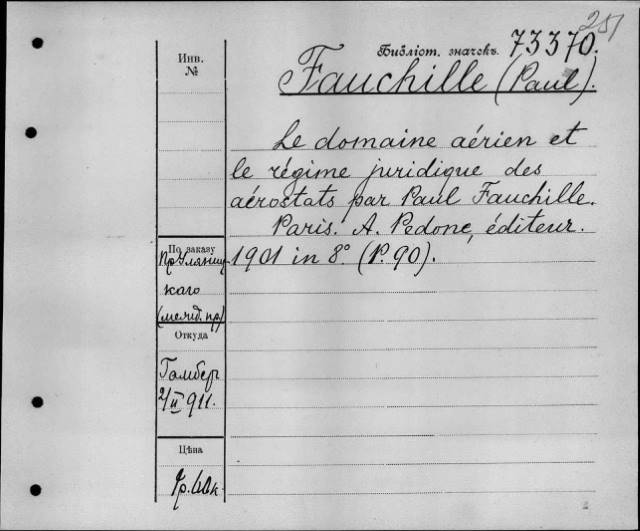 251
Библіот. значекъ 73370.
Инв.
№
Fauchille (Paul).
Le domaine aérien et
le régime juridique des
aérostats par Paul Fauchille.
Paris. A. Pedone, éditeur.
1901 in 8° (P. 90).
По заказу
Пр Уляниц
каго
(межд. пр)
Откуда
Гамбер
2/II 911.
Цѣна